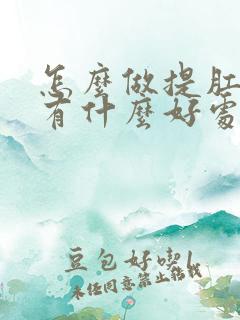 怎麼做提肛
有什麼好處
豆包好喫
未经同意禁止搬我